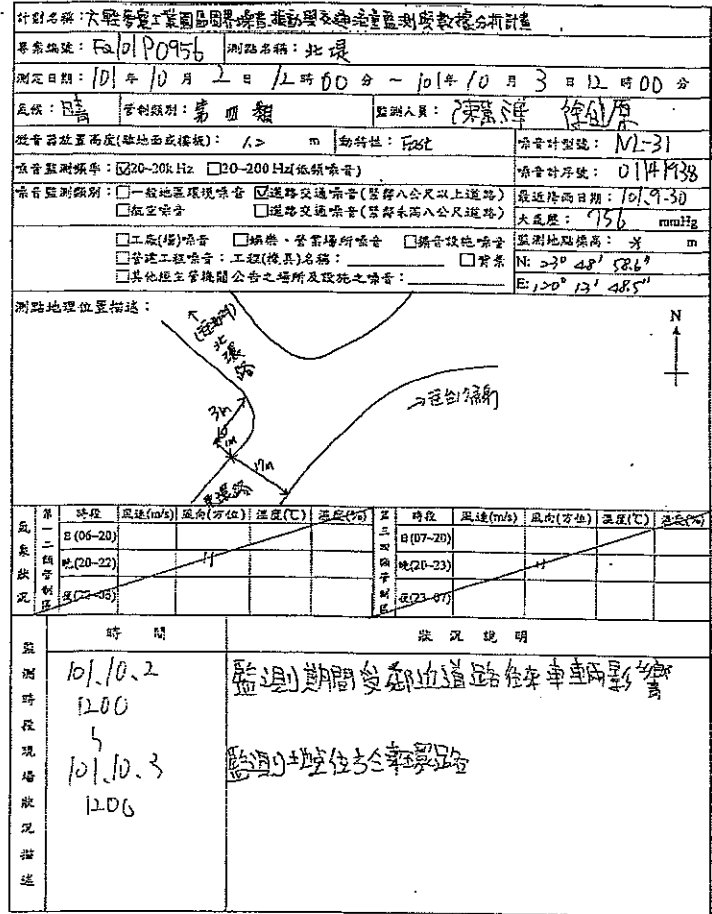 計劃名稱：六輕麥寮工業園區周界噪音振動暨交通流量監測與數據分析計畫
專案編號：Fa101P0956 測點名稱：北堤
測定日期：101 年 10 月 2 日 12 時 00 分 ~ 101 年 10 月 3 日 12 時 00 分
天候：晴 管制類別：第四類 監測人員：
聲音器放置高度(離地面或樓板)： 1.2 m 動特性：Fast 噪音計型號：NL-31
噪音監測頻率：☑20~20k Hz □20~200 Hz(低頻噪音) 噪音計序號：01141938
噪音監測類別：□一般地區環境噪音 ☑道路交通噪音(緊鄰八公尺以上道路) 最近降雨日期：101.9.30
□航空噪音 □道路交通噪音(緊鄰未滿八公尺道路) 大氣壓：756 mmHg
□工廠(場)噪音 □娛樂、營業場所噪音 □擴音設施噪音 監測地點標高： m
□營建工程噪音：工程(機具)名稱： □背景 N: 23° 48' 58.6"
□其他經主管機關公告之場所及設施之噪音： E: 120° 13' 48.5"
測點地理位置描述：
N
北環路
3m
1m
17m
環路
氣象狀況
第一二類管制區 時段 風速(m/s) 風向(方位) 溫度(℃) 濕度(%) 第三四類管制區 時段 風速(m/s) 風向(方位) 溫度(℃) 濕度(%)
日(06~20) 日(07~20)
晚(20~22) 晚(20~23)
夜(22~06) 夜(23~07)
監測時段現場狀況描述
時間 狀況說明
101.10.2 監測期間受鄰近道路往來車輛影響
1200
101.10.3
1200